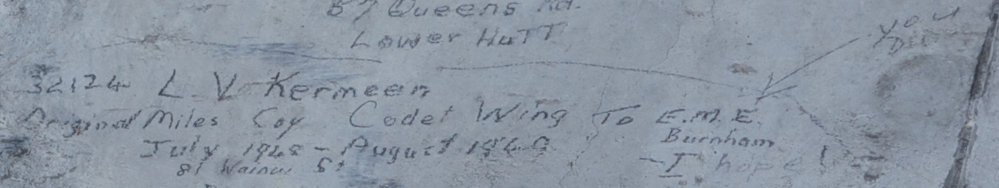 87 Queens Rd.
Lower Hutt
you
32124 L. V Kermeen
Original Miles Coy Cadet Wing To E.M.E.
Burnham
July 1948 - August 1949
- I hope!
81 St